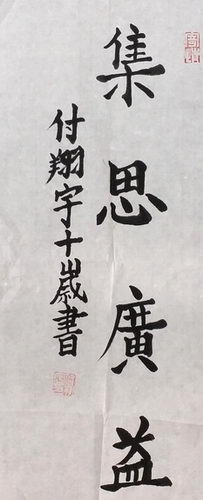 集思廣益
付翔宇十歲書